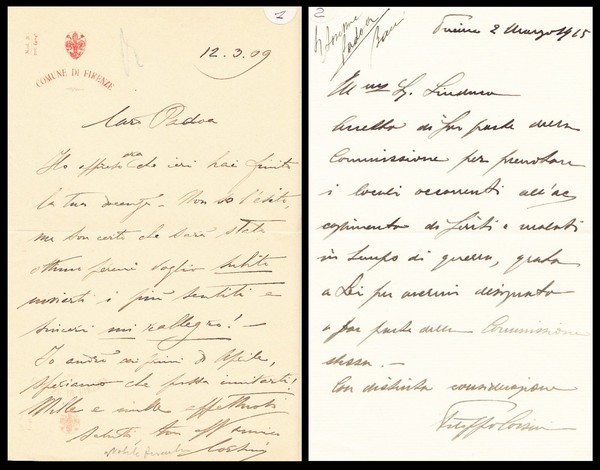 2
COMUNE DI FIRENZE
12.3.09
Caro Padoa
Ho appreso ora che ieri hai finito
la tua
Non so l'esito,
ma son certo che sarà stato
ottimo perciò voglio subito
inviarti i più sentiti e
sinceri mi rallegro! —
Io andrò ai primi di Aprile,
speriamo che possa imitarti!
Mille e mille affettuosi
saluti tuo aff amico
Corsini
2
Padova
Firenze 2 Marzo 1915
Ill mo Sig. Sindaco
Accetto di far parte della
Commissione per prenotare
i locali occorrenti all'ac
coglimento di feriti e malati
in tempo di guerra, grato
a Lei per avermi designato
a far parte della Commissione
stessa. —
Con distinta considerazione
Filippo Corsini